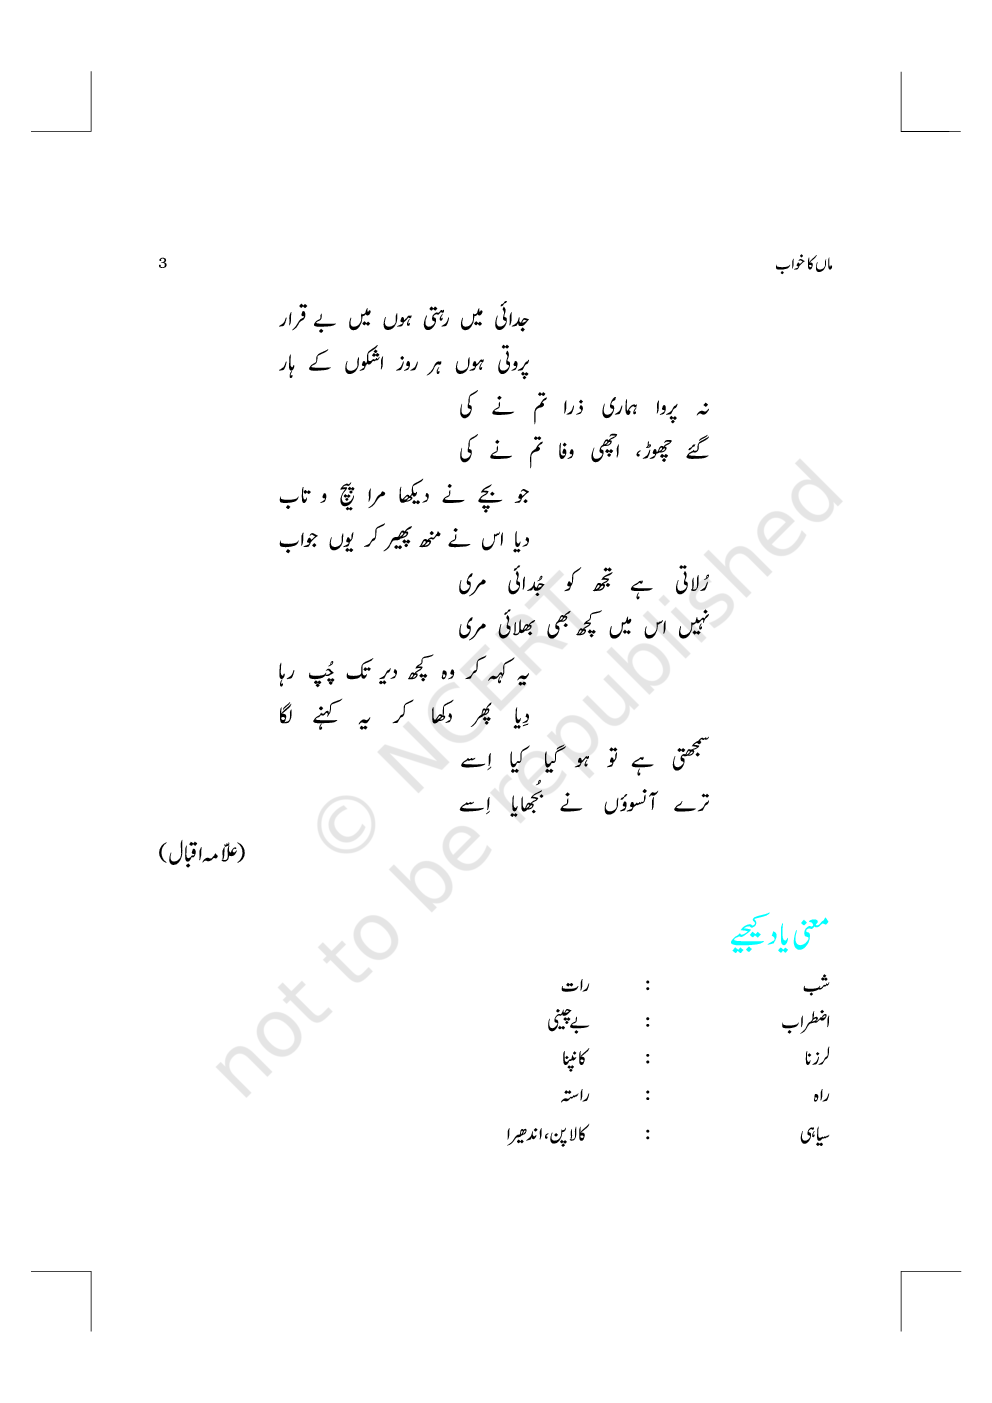 ماں کا خواب 3
جدائی میں رہتی ہوں میں بے قرار
پروتی ہوں ہر روز اشکوں کے ہار
نہ پروا ہماری ذرا تم نے کی
گئے چھوڑ، اچھی وفا تم نے کی
جو بچے نے دیکھا مرا پیچ و تاب
دیا اس نے منھ پھیر کر یوں جواب
رُلاتی ہے تجھ کو جُدائی مری
نہیں اس میں کچھ بھی بھلائی مری
یہ کہہ کر وہ کچھ دیر تک چُپ رہا
دِیا پھر دکھا کر یہ کہنے لگا
سمجھتی ہے تو ہو گیا کیا اِسے
ترے آنسوؤں نے بُجھایا اِسے
(علّامہ اقبال)
معنی یاد کیجیے
شب : رات
اضطراب : بے چینی
لرزنا : کانپنا
راہ : راستہ
سیاہی : کالا پن، اندھیرا
© NCERT
not to be republished